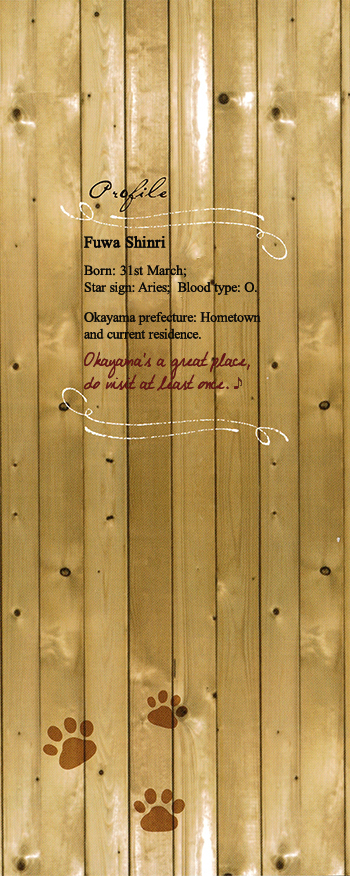 Profile
Fuwa Shinri
Born: 31st March;
Star sign: Aries; Blood type: O.
Okayama prefecture: Hometown
and current residence.
Okayama's a great place,
do visit at least once. ♪